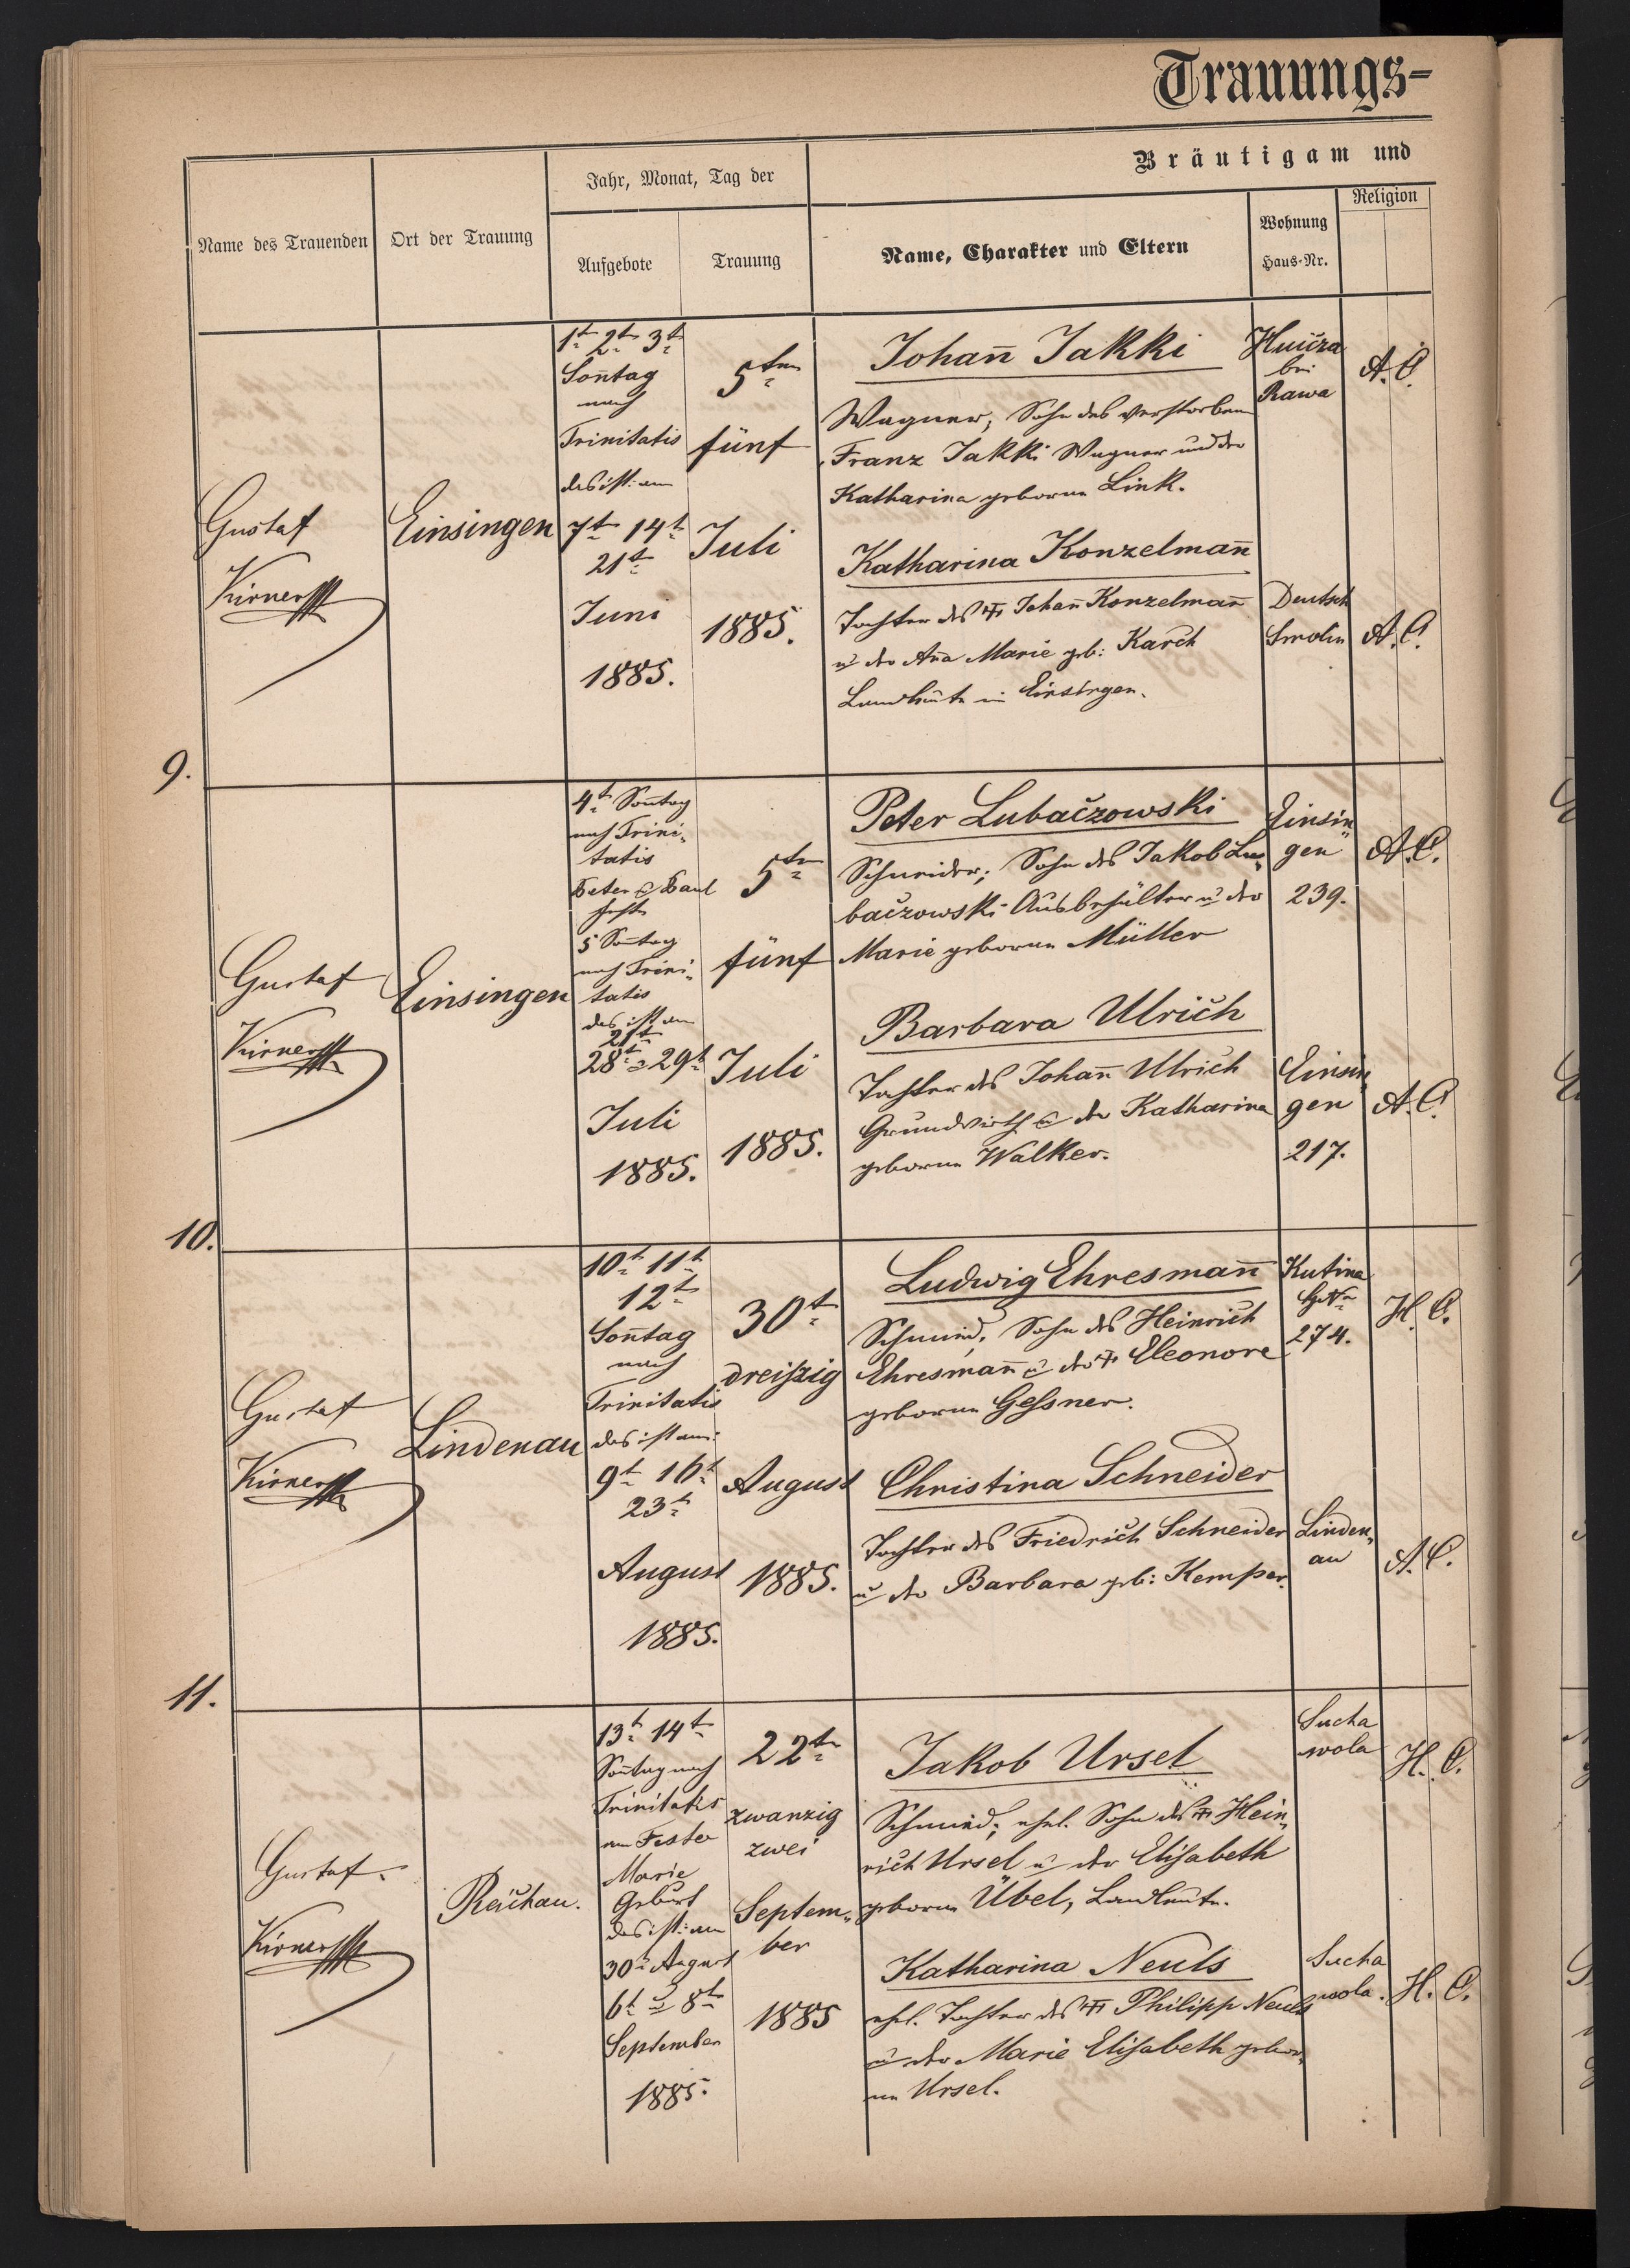 Trauungs-
Bräutigam und
Name des Trauenden
Ort der Trauung
Jahr, Monat, Tag der
Aufgebote
Trauung
Name, Charakter und Eltern
Wohnung
Haus-Nr.
Religion
Gustaf
Kirner
Einsingen
1t 2t 3t
Soñtag
nach
Trinitatis
das ist: am
7t 14t
21t
Juni
1885.
5ten
fünf
Juli
1885.
Johañ Jakki
Wagner; Sohn des verstorben
Franz Jakki Wagner und der
Katharina geborne Link.
Huicza
bei
Rawa
A. C.
Katharina Konzelmañ
Tochter des Johañ Konzelmañ
u der Aña Marie geb: Karch
Landleute in Einsingen.
Deutsch
Smolin
A. C.
9.
Gustaf
Kirner
Einsingen
4t Soñtag
nach Trini-
tatis
Peter u Paul
feste
5 Soñtag
nach Trini-
tatis
das ist am
21t
28t u 29t
Juli
1885.
5te
fünf
Juli
1885.
Peter Lubaczowski
Schneider; Sohn des Jakob Lu-
baczowski Ausbehälter u der
Marie geborne Müller
Einsin-
gen
239.
A. C.
Barbara Ulrich
Tochter des Johañ Ulrich
Grundwirth u der Katharina
geborne Walker.
Einsin-
gen
217.
A. C.
10.
Gustaf
Kirner
Lindenau
10t 11t
12t
Soñtag
nach
Trinitatis
das ist am:
9t 16t
23t
August
1885.
30t
dreißzig
August
1885.
Ludwig Ehresmañ
Schmied, Sohn des Heinrich
Ehresmañ u der Eleonore
geborne Geßner.
Kutina
274.
H. C.
Christina Schneider
Tochter des Friedrich Schneider
u der Barbara geb: Kemper.
Linden-
au
A. C.
11.
Gustaf
Kirner
Reichau.
13t 14t
Soñtag nach
Trinitatis
am Feste
Marie
Geburt
das ist: am
30t August
6t u 8t
September
1885.
22te
zwanzig
zwei
Septem-
ber
1885
Jakob Ursel
Schmied; ehel. Sohn des Hein-
rich Ursel u der Elisabeth
geborne Übel, Landleute.
Sucha
wola
H. C.
Katharina Neuls
ehel. Tochter des Philipp Neuls
u der Marie Elisabeth gebor-
ne Ursel.
Sucha
wola.
H. C.